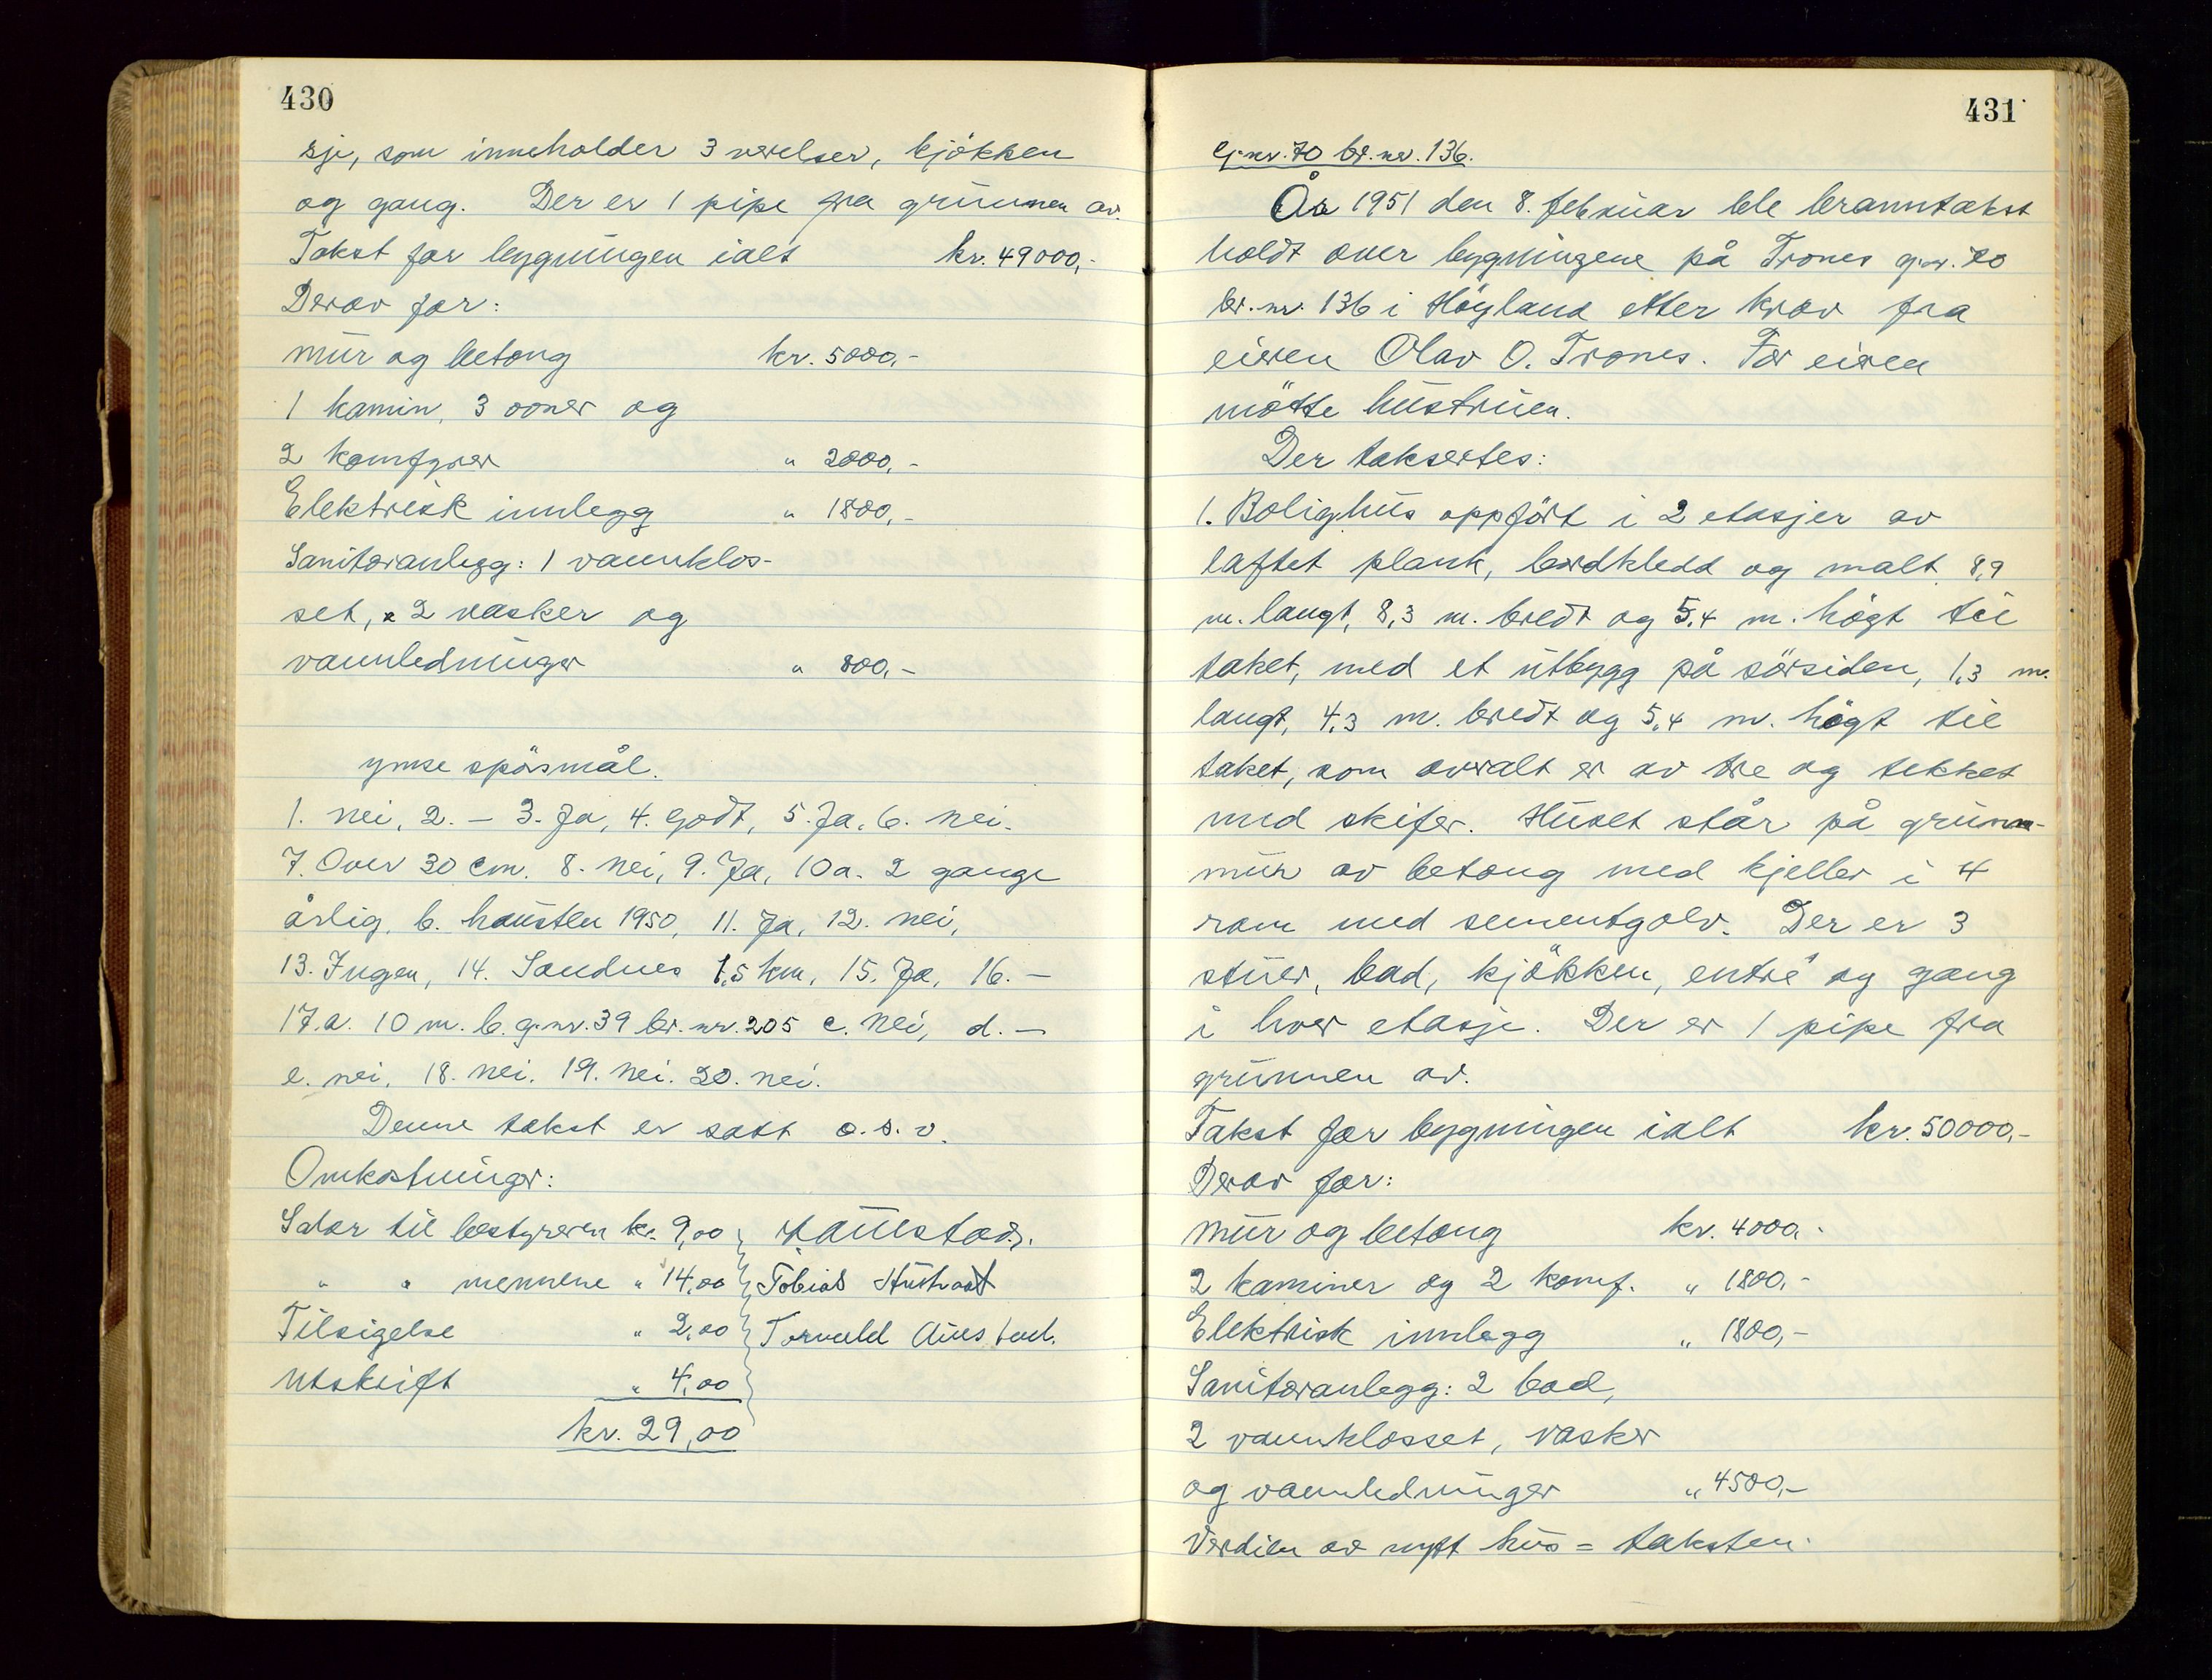 430
sje, som inneholder 3 værelser, kjökken
og gang. Der er 1 pipe fra grunnen av.
Takst for bygningen ialt kr. 49000,-
Derav for:
mur og betong kr. 5000,-
1 kamin, 3 ovner og
2 komfyrer " 2000,-
Elektrisk innlegg " 1800,-
Sanitæranlegg: 1 vannklos-
set, 2 vasker og
vannledninger " 800,-
ymse spörsmål.
1. nei, 2. – 3. Ja, 4. godt, 5. Ja, 6. nei.
7. Over 30 cm. 8. nei, 9. Ja, 10a. 2 gange
årlig, b. hausten 1950, 11. Ja, 12. nei,
13. Ingen, 14. Sandnes 1,5 km, 15. Ja, 16. –
17.a. 10 m. b. g.nr. 39 br.nr. 205 c. nei, d. –
e. nei, 18. nei. 19. nei. 20. nei.
Denne takst er satt o.s.v.
Omkostninger:
Salær til bestyreren kr. 9,00
" " mennene " 14,00 Tobias
Tilsigelse " 2,00 Torvald Austad.
Utskrift " 4,00
kr. 29,00
431
G.nr. 70 br.nr. 136.
År 1951 den 8. februar ble branntakst
holdt over bygningene på Trones g.nr. 70
br.nr. 136 i Høyland etter krav fra
eieren Olav O. Trones. For eieren
mötte hustruen.
Der taksertes:
1. Bolighus oppfört i 2 etasjer av
laftet plank, bordkledd og malt 8,9
m. langt, 8,3 m. bredt og 5,4 m. högt til
taket, med et utbygg på sörsiden, 1,3 m.
langt, 4,3 m. bredt og 5,4 m. högt til
taket, som overalt er av tre og tekket
med skifer. Huset står på grunn-
mur av betong med kjeller i 4
rom med sementgolv. Der er 3
stuer, bad, kjökken, entré og gang
i hver etasje. Der er 1 pipe fra
grunnen av.
Takst for bygningen ialt kr. 50000,-
Derav for:
mur og betong kr. 4000,-
2 kaminer og 2 komf. " 1800,-
Elektrisk innlegg " 1800,-
Sanitæranlegg: 2 bad,
2 vannklosset, vasker
og vannledninger " 4500,-
Verdien av nytt hus = taksten.